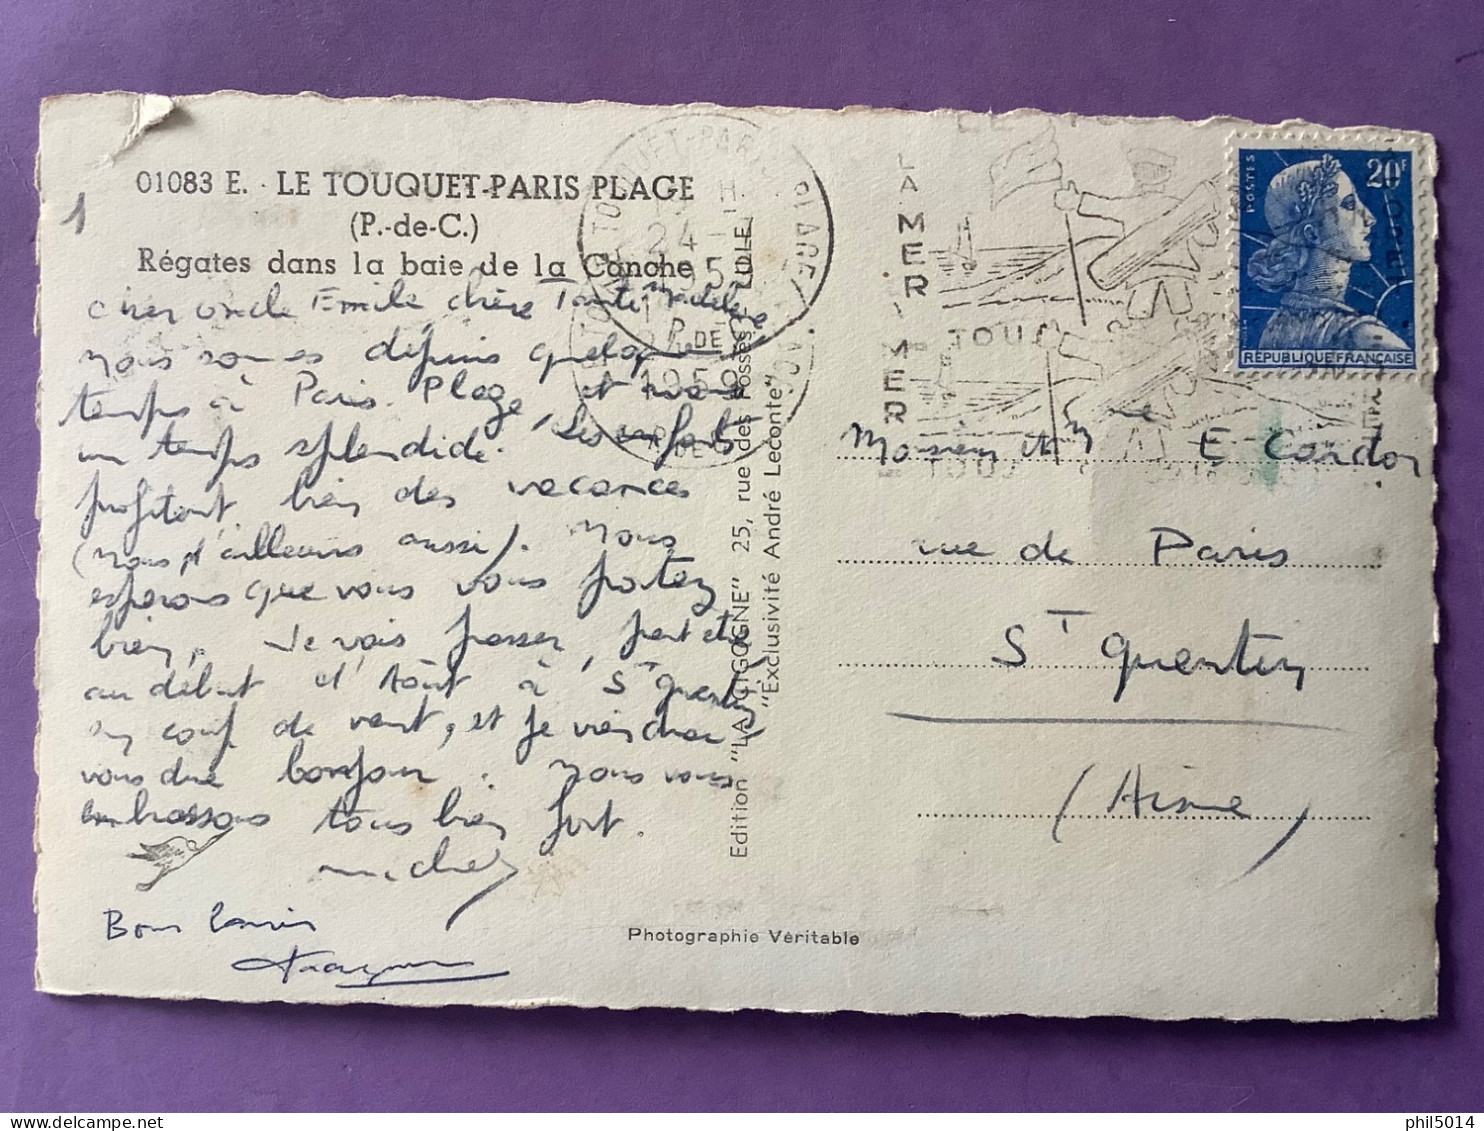 1
01083 E. LE TOUQUET-PARIS PLAGE
(P.-de-C.)
Régates dans la baie de la Canche
cher oncle Emile chère Tante Madeleine
nous sommes depuis quelque
temps à Paris Plage, et avons
un temps splendide. Les enfants
profitent bien des vacances
(nous d'ailleurs aussi). Nous
espérons que vous vous portez
bien. Je vais passer peut être
au début d'Août à St Quentin
en coup de vent, et je viendrai
vous dire bonjour. Nous vous
embrassons tous bien fort.
Michel
Bons baisers
Edition "LA CIGOGNE" 25, rue des Fossés LILLE
"Exclusivité André Leconte"
Photographie Véritable
LE TOUQUET-PARIS-PLAGE
24
1959
P. DE C.
LA MER
TOUS
POSTES
20F
RÉPUBLIQUE FRANÇAISE
Monsieur et Mme E Cardon
rue de Paris
St Quentin
(Aisne)
phil5014